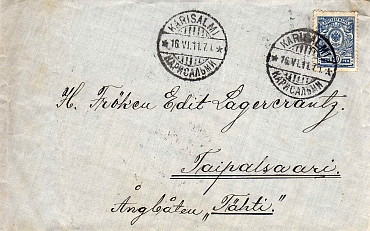 KARISALMI
16.VI.11.7.
КАРИСАЛМИ
KARISALMI
16.VI.11.7.
КАРИСАЛМИ
H. Fröken Edit Lagercrantz.
Taipalsaari.
Ångbåten „Tähti".